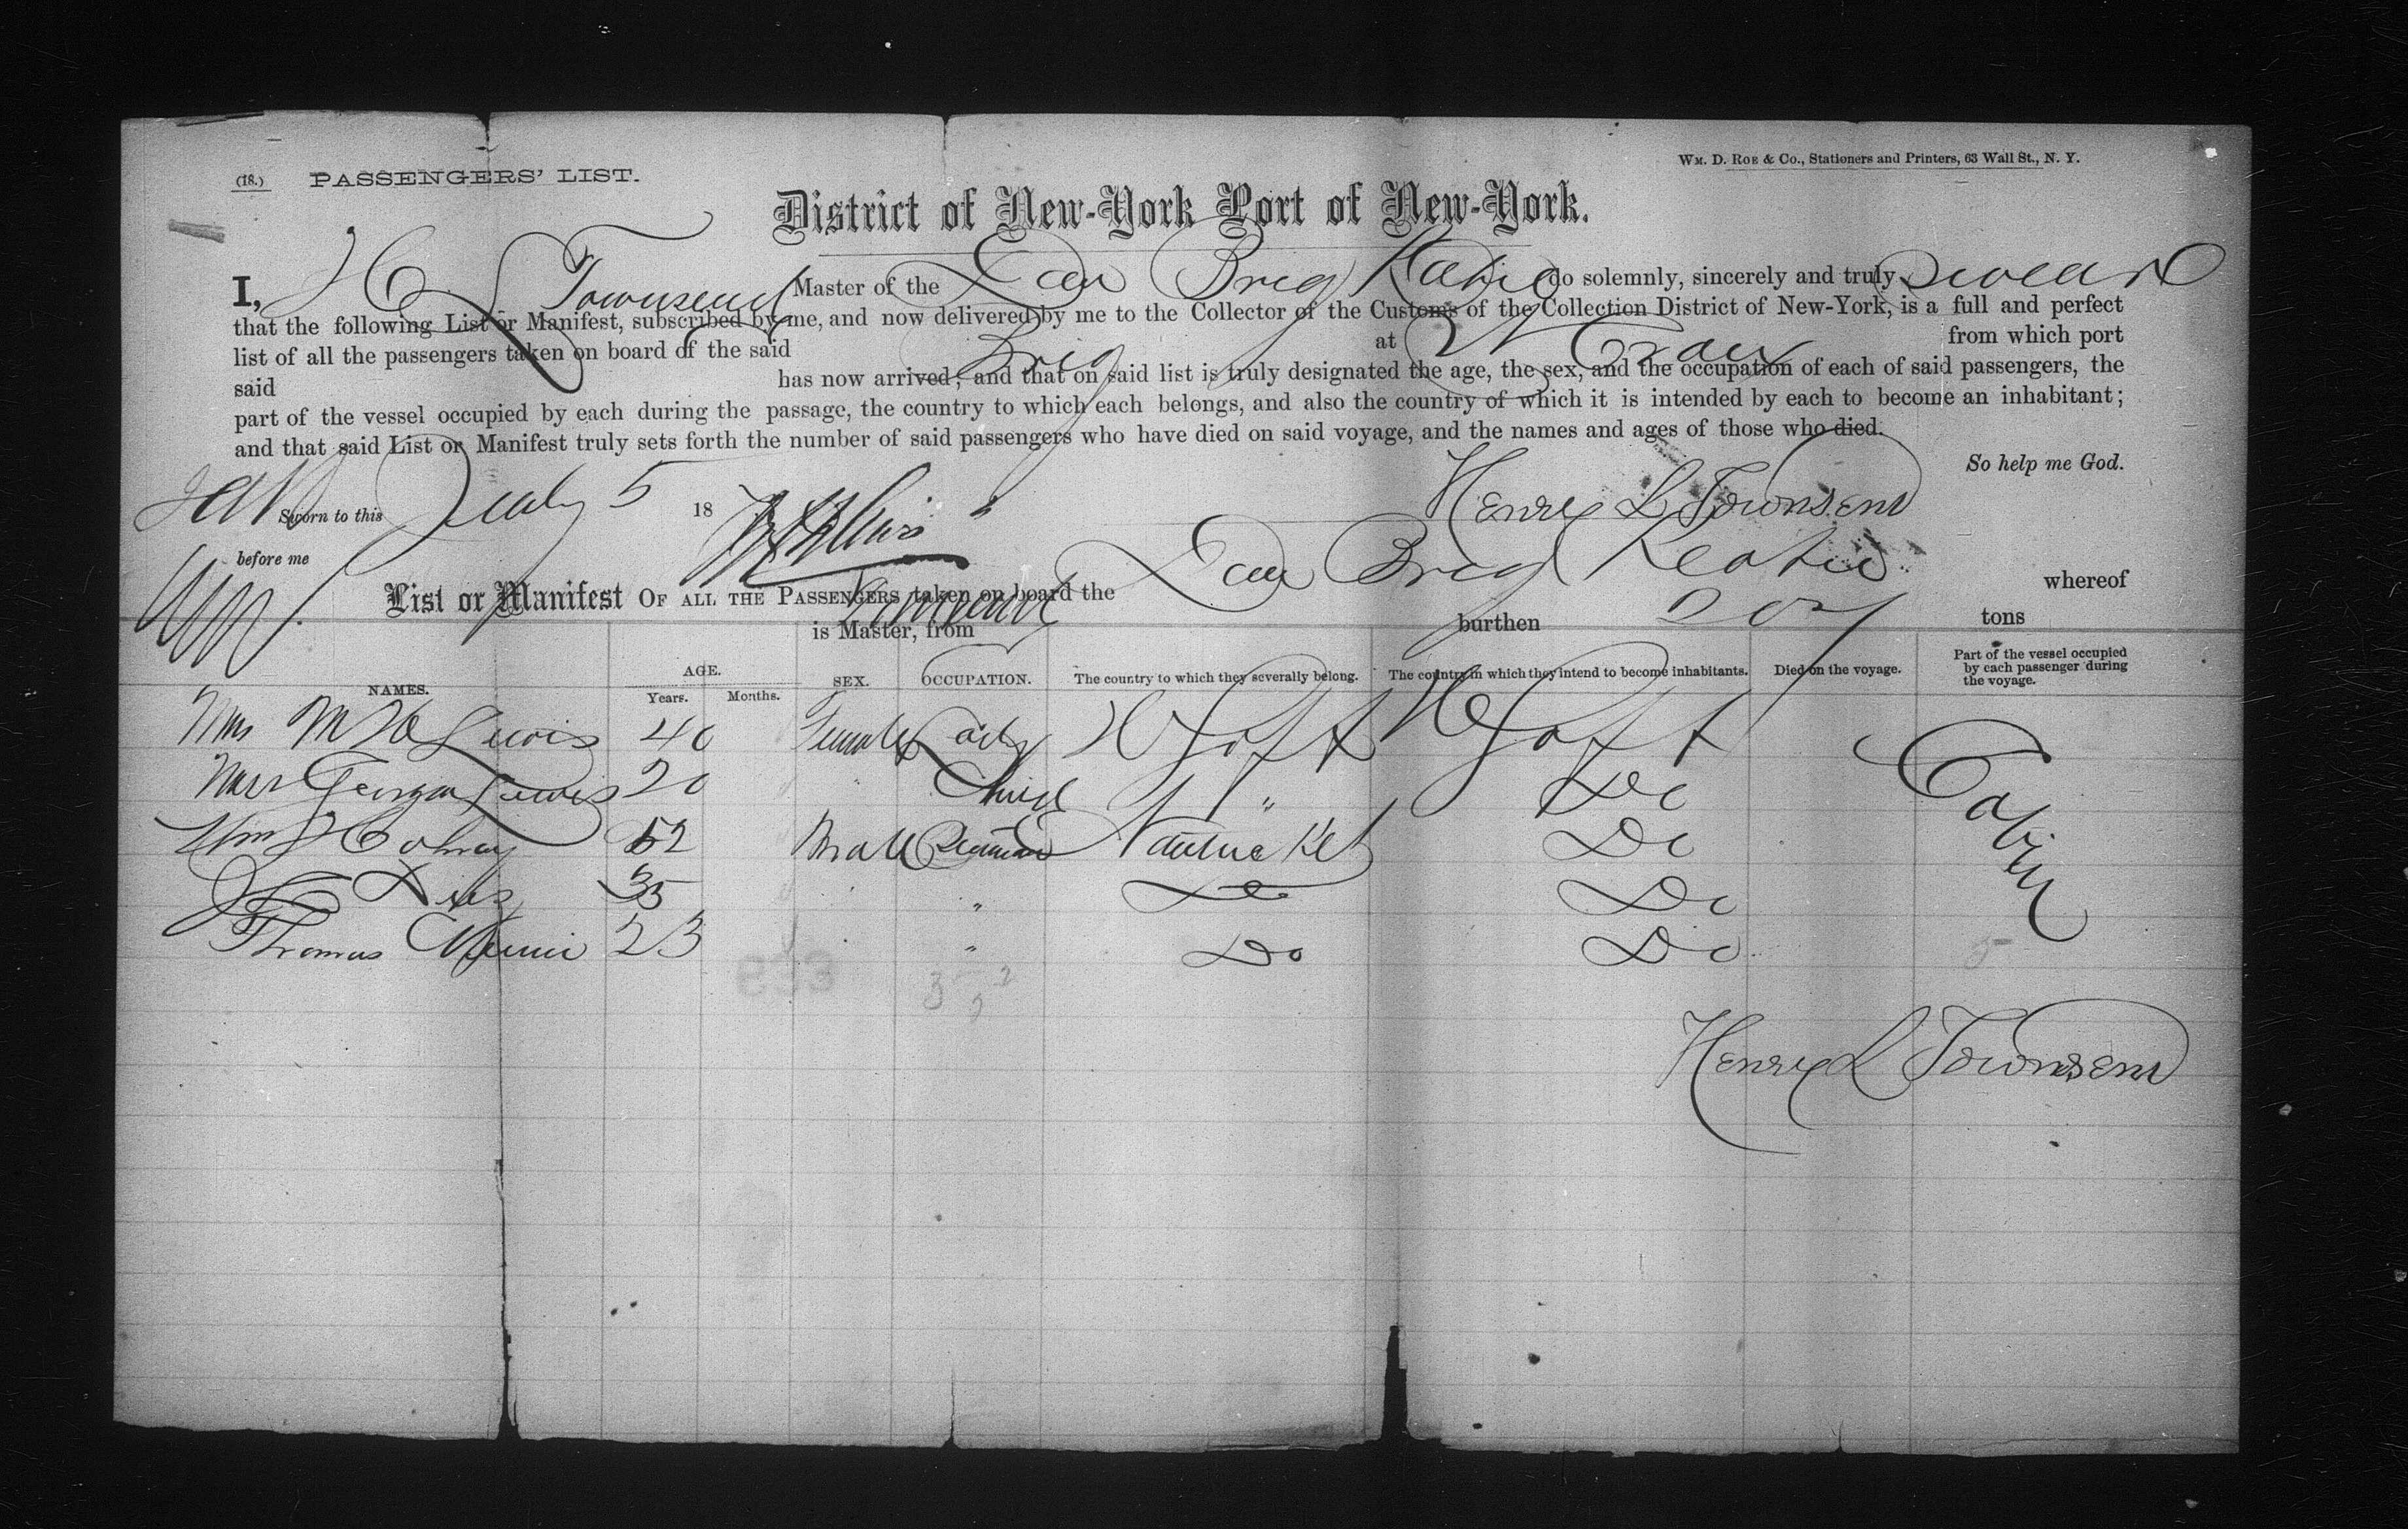 Wm. D. Roe & Co., Stationers and Printers, 63 Wall St., N. Y.
(18.) PASSENGERS' LIST.
District of New-York Port of New-York.
I, H L Townsend Master of the Dan Brig Katie do solemnly, sincerely and truly Swear
that the following List or Manifest, subscribed by me, and now delivered by me to the Collector of the Customs of the Collection District of New-York, is a full and perfect
list of all the passengers taken on board of the said Brig at from which port
said has now arrived; and that on said list is truly designated the age, the sex, and the occupation of each of said passengers, the
part of the vessel occupied by each during the passage, the country to which each belongs, and also the country of which it is intended by each to become an inhabitant;
and that said List or Manifest truly sets forth the number of said passengers who have died on said voyage, and the names and ages of those who died.
So help me God.
Sworn to this July 5 18 Henry L Townsend
before me
List or Manifest OF ALL THE PASSENGERS taken on board the Dan Brig Katie whereof
Townsend is Master, from burthen 207 tons
NAMES. AGE. Years. Months. SEX. OCCUPATION. The country to which they severally belong. The country in which they intend to become inhabitants. Died on the voyage. Part of the vessel occupied by each passenger during the voyage.
Mrs M Lewis 40 Female Lady
Lewis 20 " Child " Do
Wm 52 Male Seaman Nantucket Do
35 " " Do Do
Thomas 23 " " Do Do
Cabin
Henry L Townsend